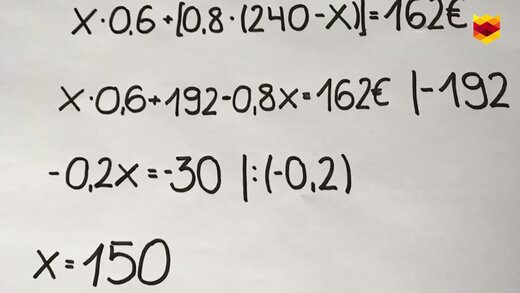 x·0.6+[0,8·(240-x)]=162€
x·0,6+192-0,8x=162€ |-192
-0,2x=-30 |:(-0,2)
x=150